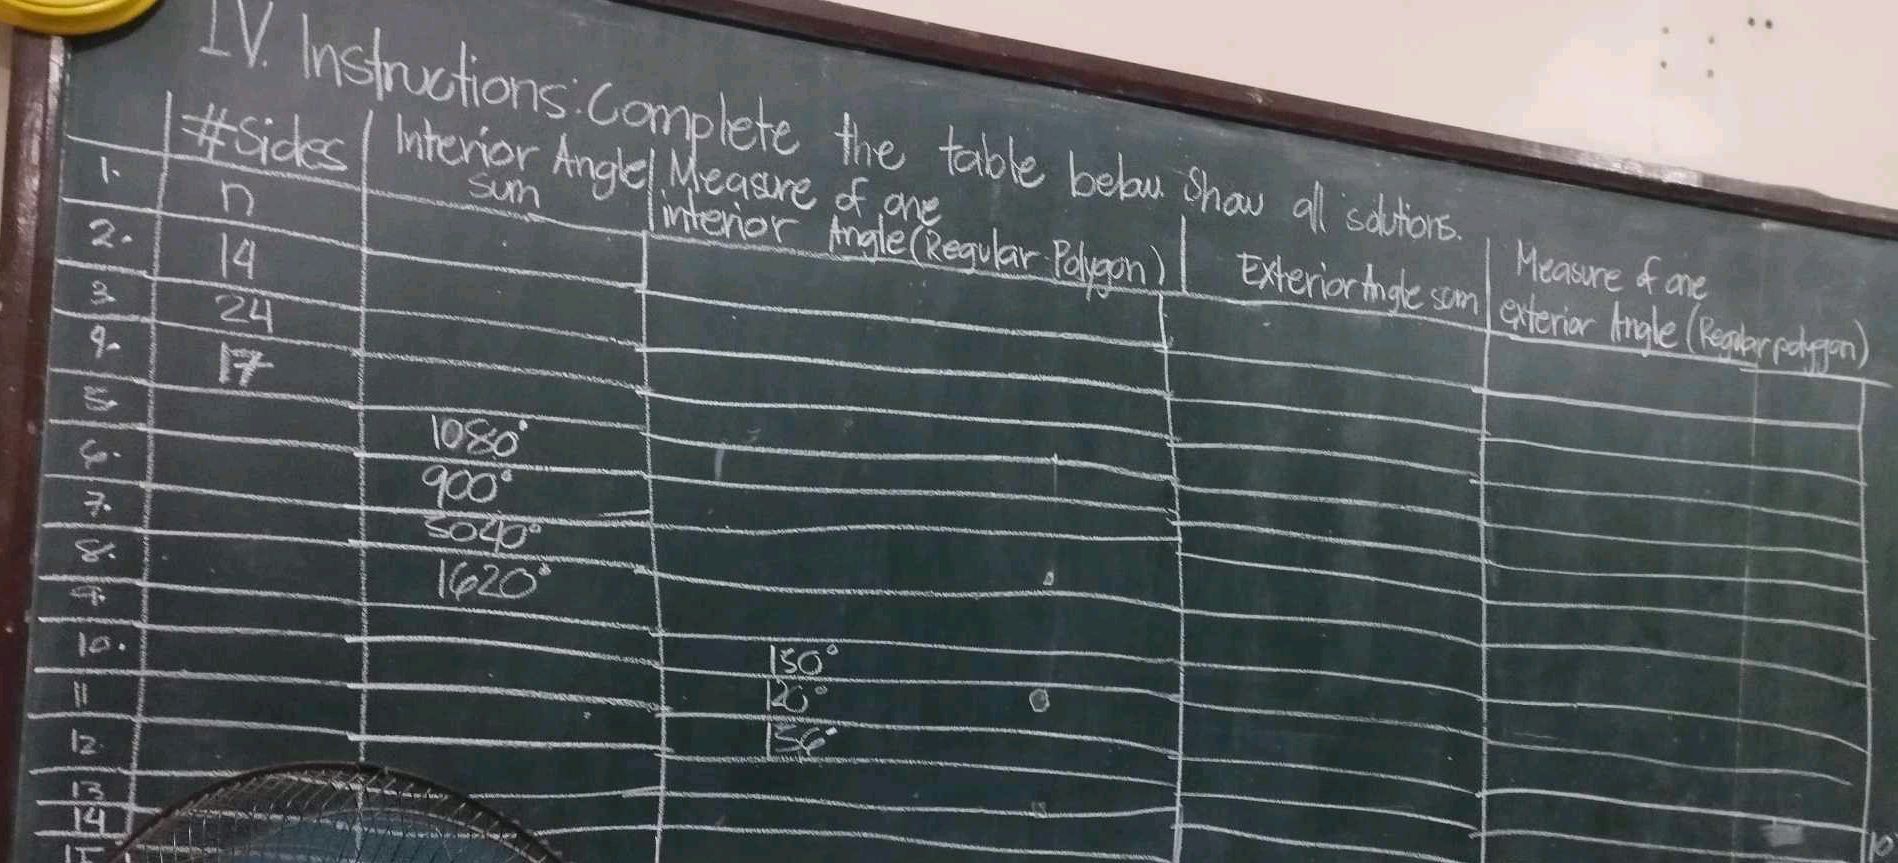 IV. Instructions: Complete the table below. Show all solutions.
#Sides
Interior Angle
sum
Measure of one
interior Angle (Regular Polygon)
Exterior Angle sum
Measure of one
exterior Angle (Regular polygon)
1. n
2. 14
3. 24
4. 17
5. 1080°
6. 900°
7. 5040°
8. 1620°
9.
10. 150°
11 120°
12. 156°
13
14
15
10